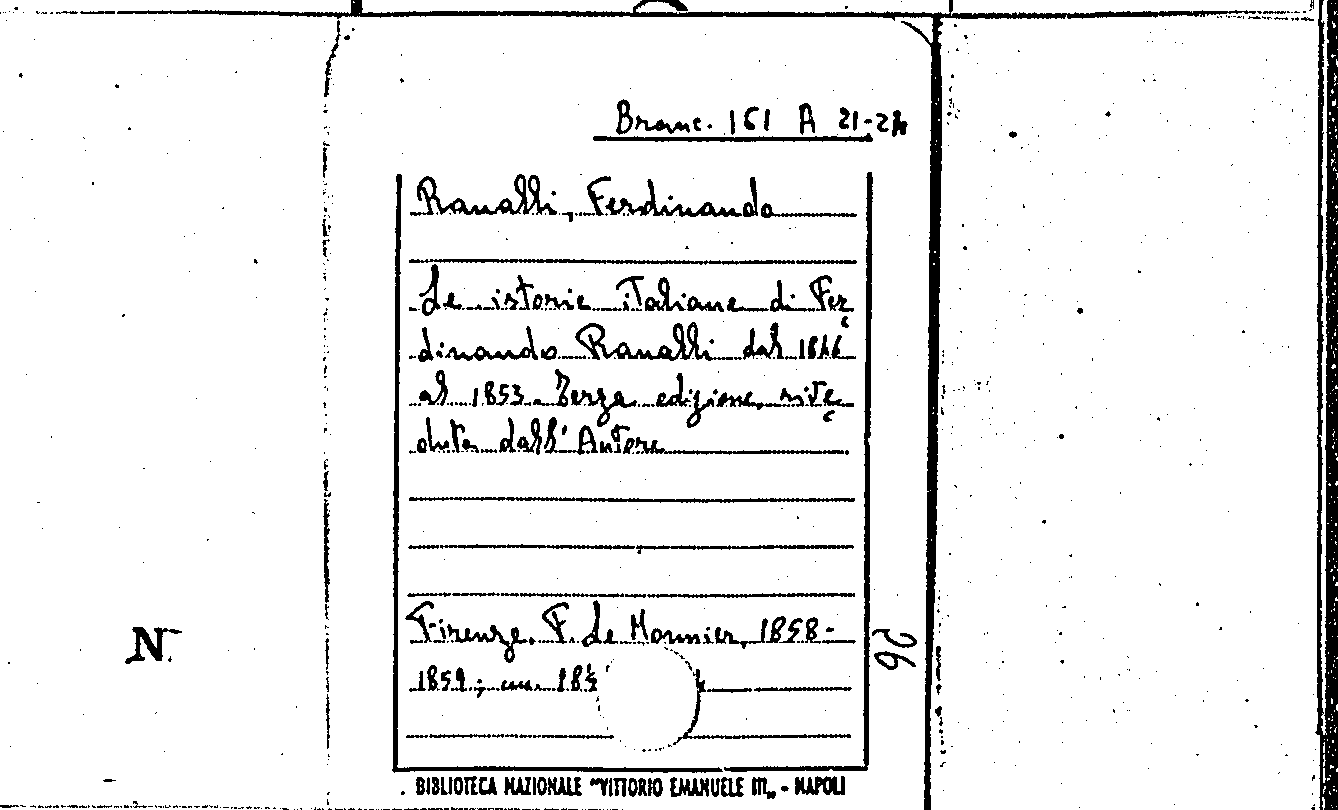 Branc. 161 A 21-24
Ranalli, Ferdinando
Le istorie italiane di Fer
dinando Ranalli dal 1846
al 1853. Terza edizione, rive
duta dall'Autore
Firenze. F. Le Monnier, 1858-
1859; cm. 18½
26
N
BIBLIOTECA NAZIONALE "VITTORIO EMANUELE III" - NAPOLI